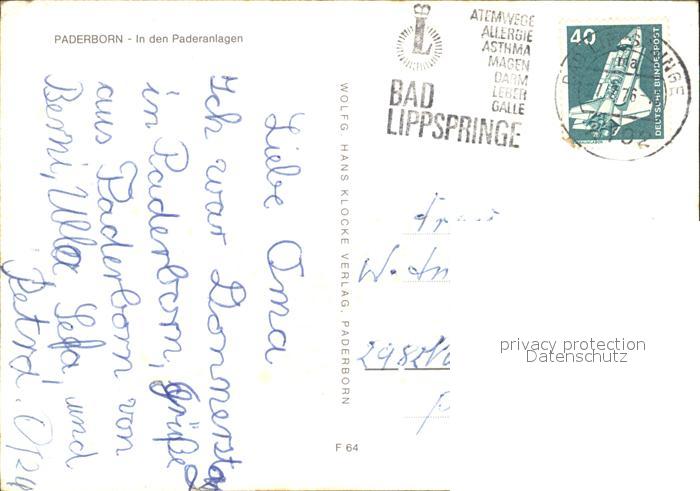 PADERBORN - In den Paderanlagen
Liebe Oma
Ich war Donnerstag
in Paderborn, Grüße
aus Paderborn von
Berni, Ulla, und
Petra!
WOLFG. HANS KLOCKE VERLAG, PADERBORN
F 64
L
ATEMWEGE
ALLERGIE
ASTHMA
MAGEN
DARM
LEBER
GALLE
BAD
LIPPSPRINGE
40
DEUTSCHE BUNDESPOST
Frau
W.
2982
privacy protection
Datenschutz